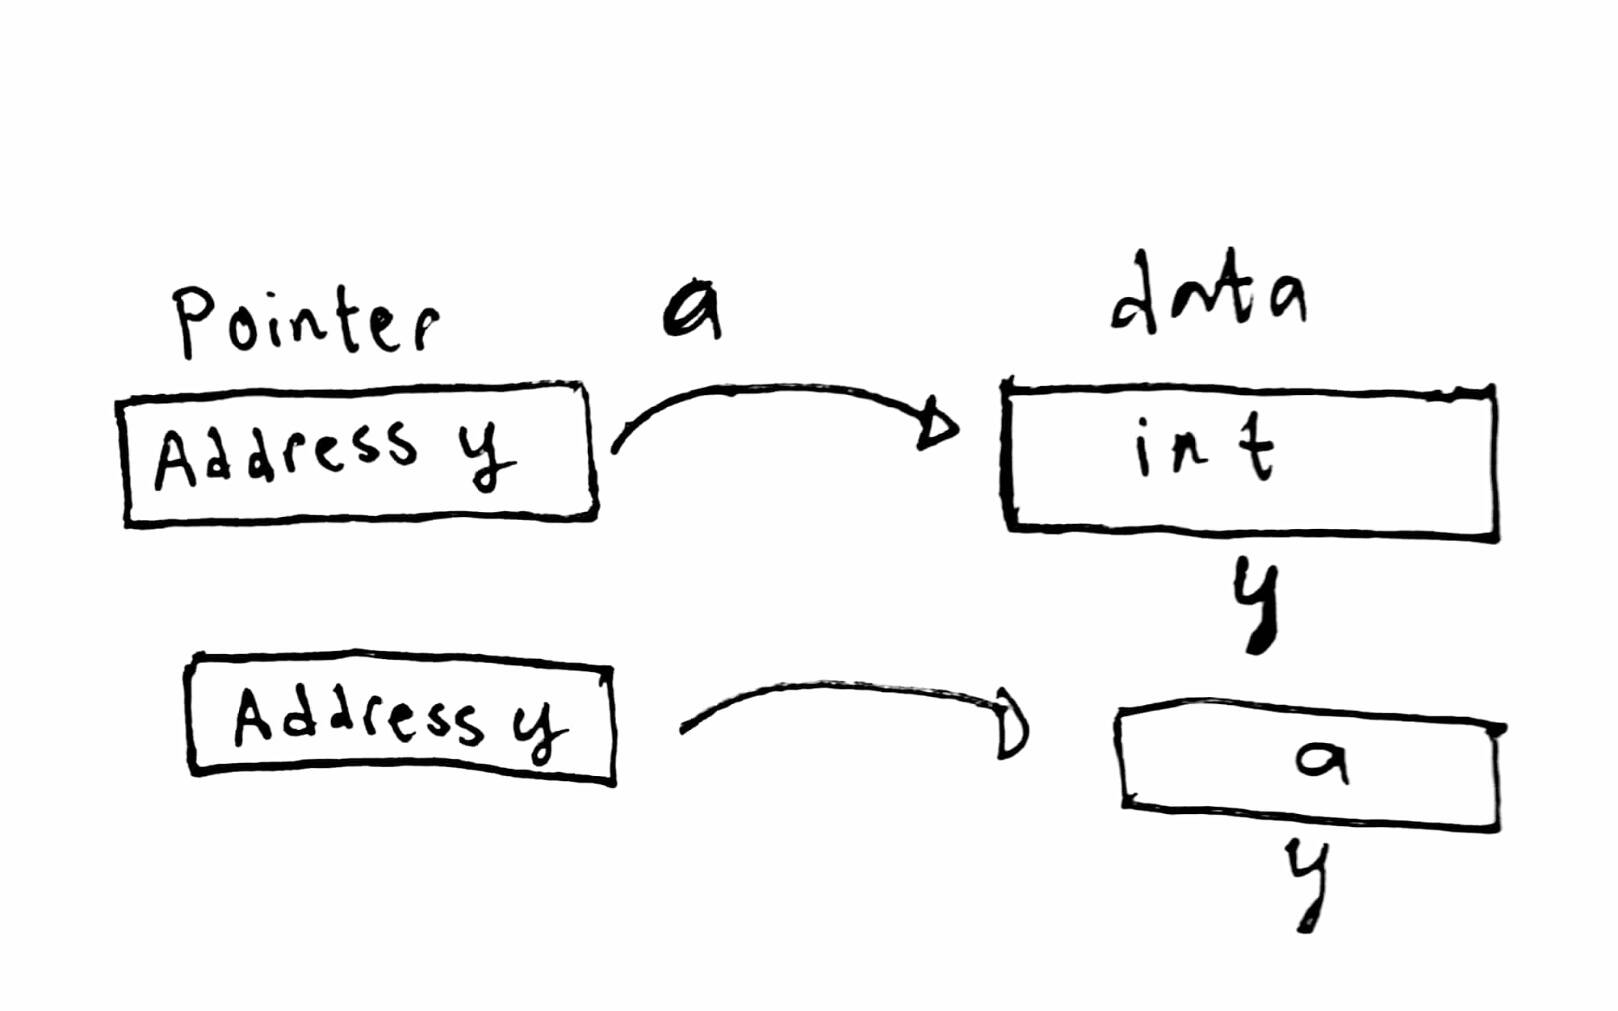 Pointer a data
Address y int
y
Address y a
y